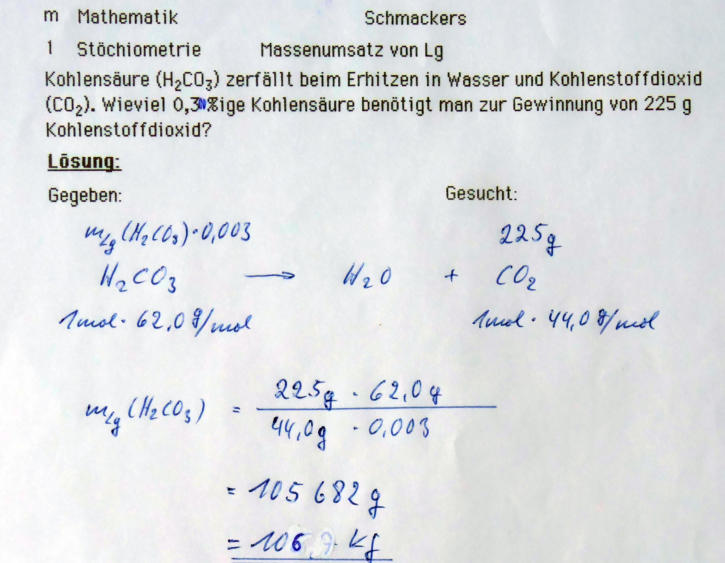 m Mathematik Schmackers
1 Stöchiometrie Massenumsatz von Lg
Kohlensäure (H₂CO₃) zerfällt beim Erhitzen in Wasser und Kohlenstoffdioxid
(CO₂). Wieviel 0,3%ige Kohlensäure benötigt man zur Gewinnung von 225 g
Kohlenstoffdioxid?
Lösung:
Gegeben: Gesucht:
m_Lg (H₂CO₃) · 0,003 225g
H₂CO₃ → H₂O + CO₂
1mol · 62,0 g/mol 1mol · 44,0 g/mol
m_Lg (H₂CO₃) = 225g · 62,0g
44,0g · 0,003
= 105 682 g
= 106 kg